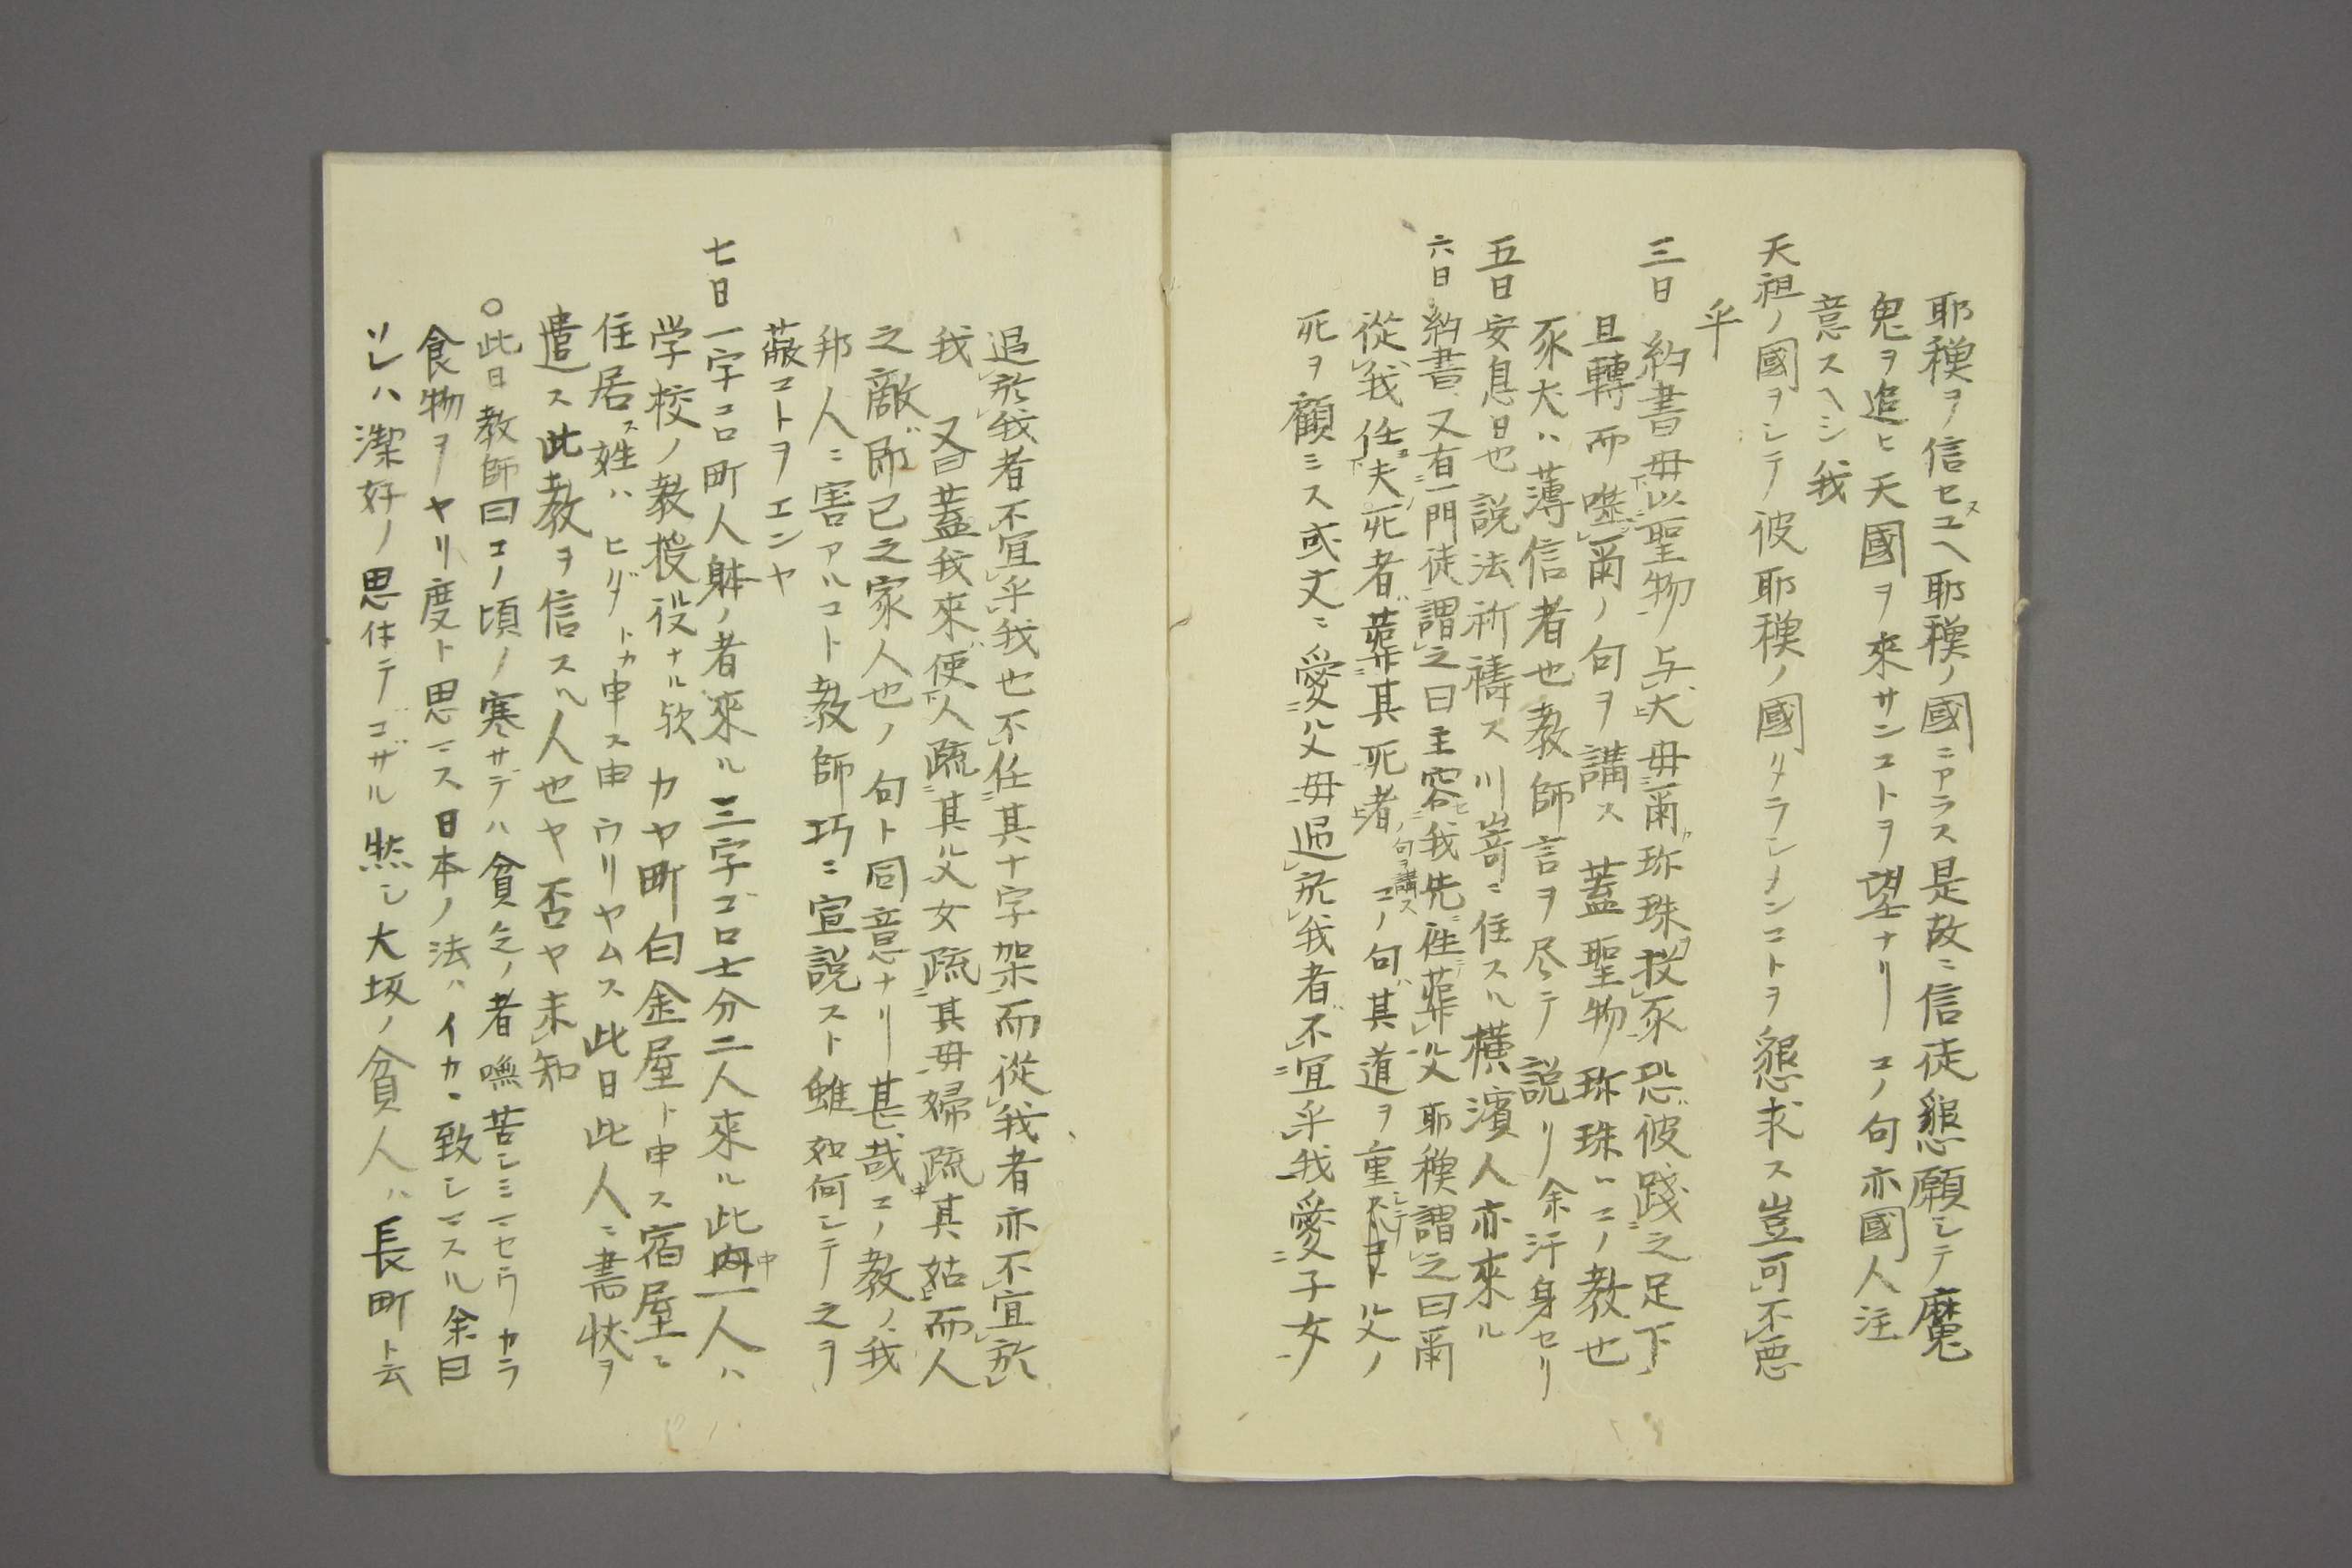 耶穌ヲ信セスユヘ耶穌ノ國ニアラス是故ニ信徒懇願シテ魔
鬼ヲ追ヒ天國ヲ來サンコトヲ望ナリ コノ句亦國人注
意スヘシ我
天祖ノ國ヲシテ彼耶穌ノ國タラシメンコトヲ懇求ス豈可不悪
乎
三日 約書毋以聖物与犬毋爾珎珠投豕恐彼踐之足下
且轉而噬爾ノ句ヲ講ス 蓋聖物珎珠ハコノ教也
豕犬ハ薄信者也教師言ヲ尽シテ説リ余汗身セリ
五日 安息日也説法祈禱ス川嵜ニ住スル横濱人亦來ル
六日 約書又有一門徒謂之曰主容我先徃葬父耶穌謂之曰爾
從我任夫死者葬其死者ノ句ヲ講ス コノ句ハ其道ヲ重シテ父ノ
死ヲ顧ミス或文ニ愛父毋過於我者不宜乎我愛子女
過於我者不宜乎我也不任其十字架而從我者亦不宜於
我 又曰蓋我來使人疏其父女疏其毋婦疏其姑而人
之敵即已之家人也ノ句ト同意ナリ甚哉コノ教ノ我
邦人ニ害アルコト教師巧ニ宣説スト雖如何シテ之ヲ
蔽コトヲエンヤ
七日 一字コロ町人躰ノ者來ル三字ゴロ士分二人來ル此中一人ハ
学校ノ教授役ナル欤カヤ町白金屋ト申ス宿屋ニ
住居ス姓ハヒダトカ申ス由ウリヤムス此日此人ニ書状ヲ
遣ス此教ヲ信スル人也ヤ否ヤ未知
○此日教師曰コノ頃ノ寒サデハ貧乏ノ者嘸苦シミマセウカラ
食物ヲヤリ度ト思マス日本ノ法ハイカヽ致シマスル余曰
ソレハ潔好ノ思体テゴザル然シ大坂ノ貧人ハ長町ト云